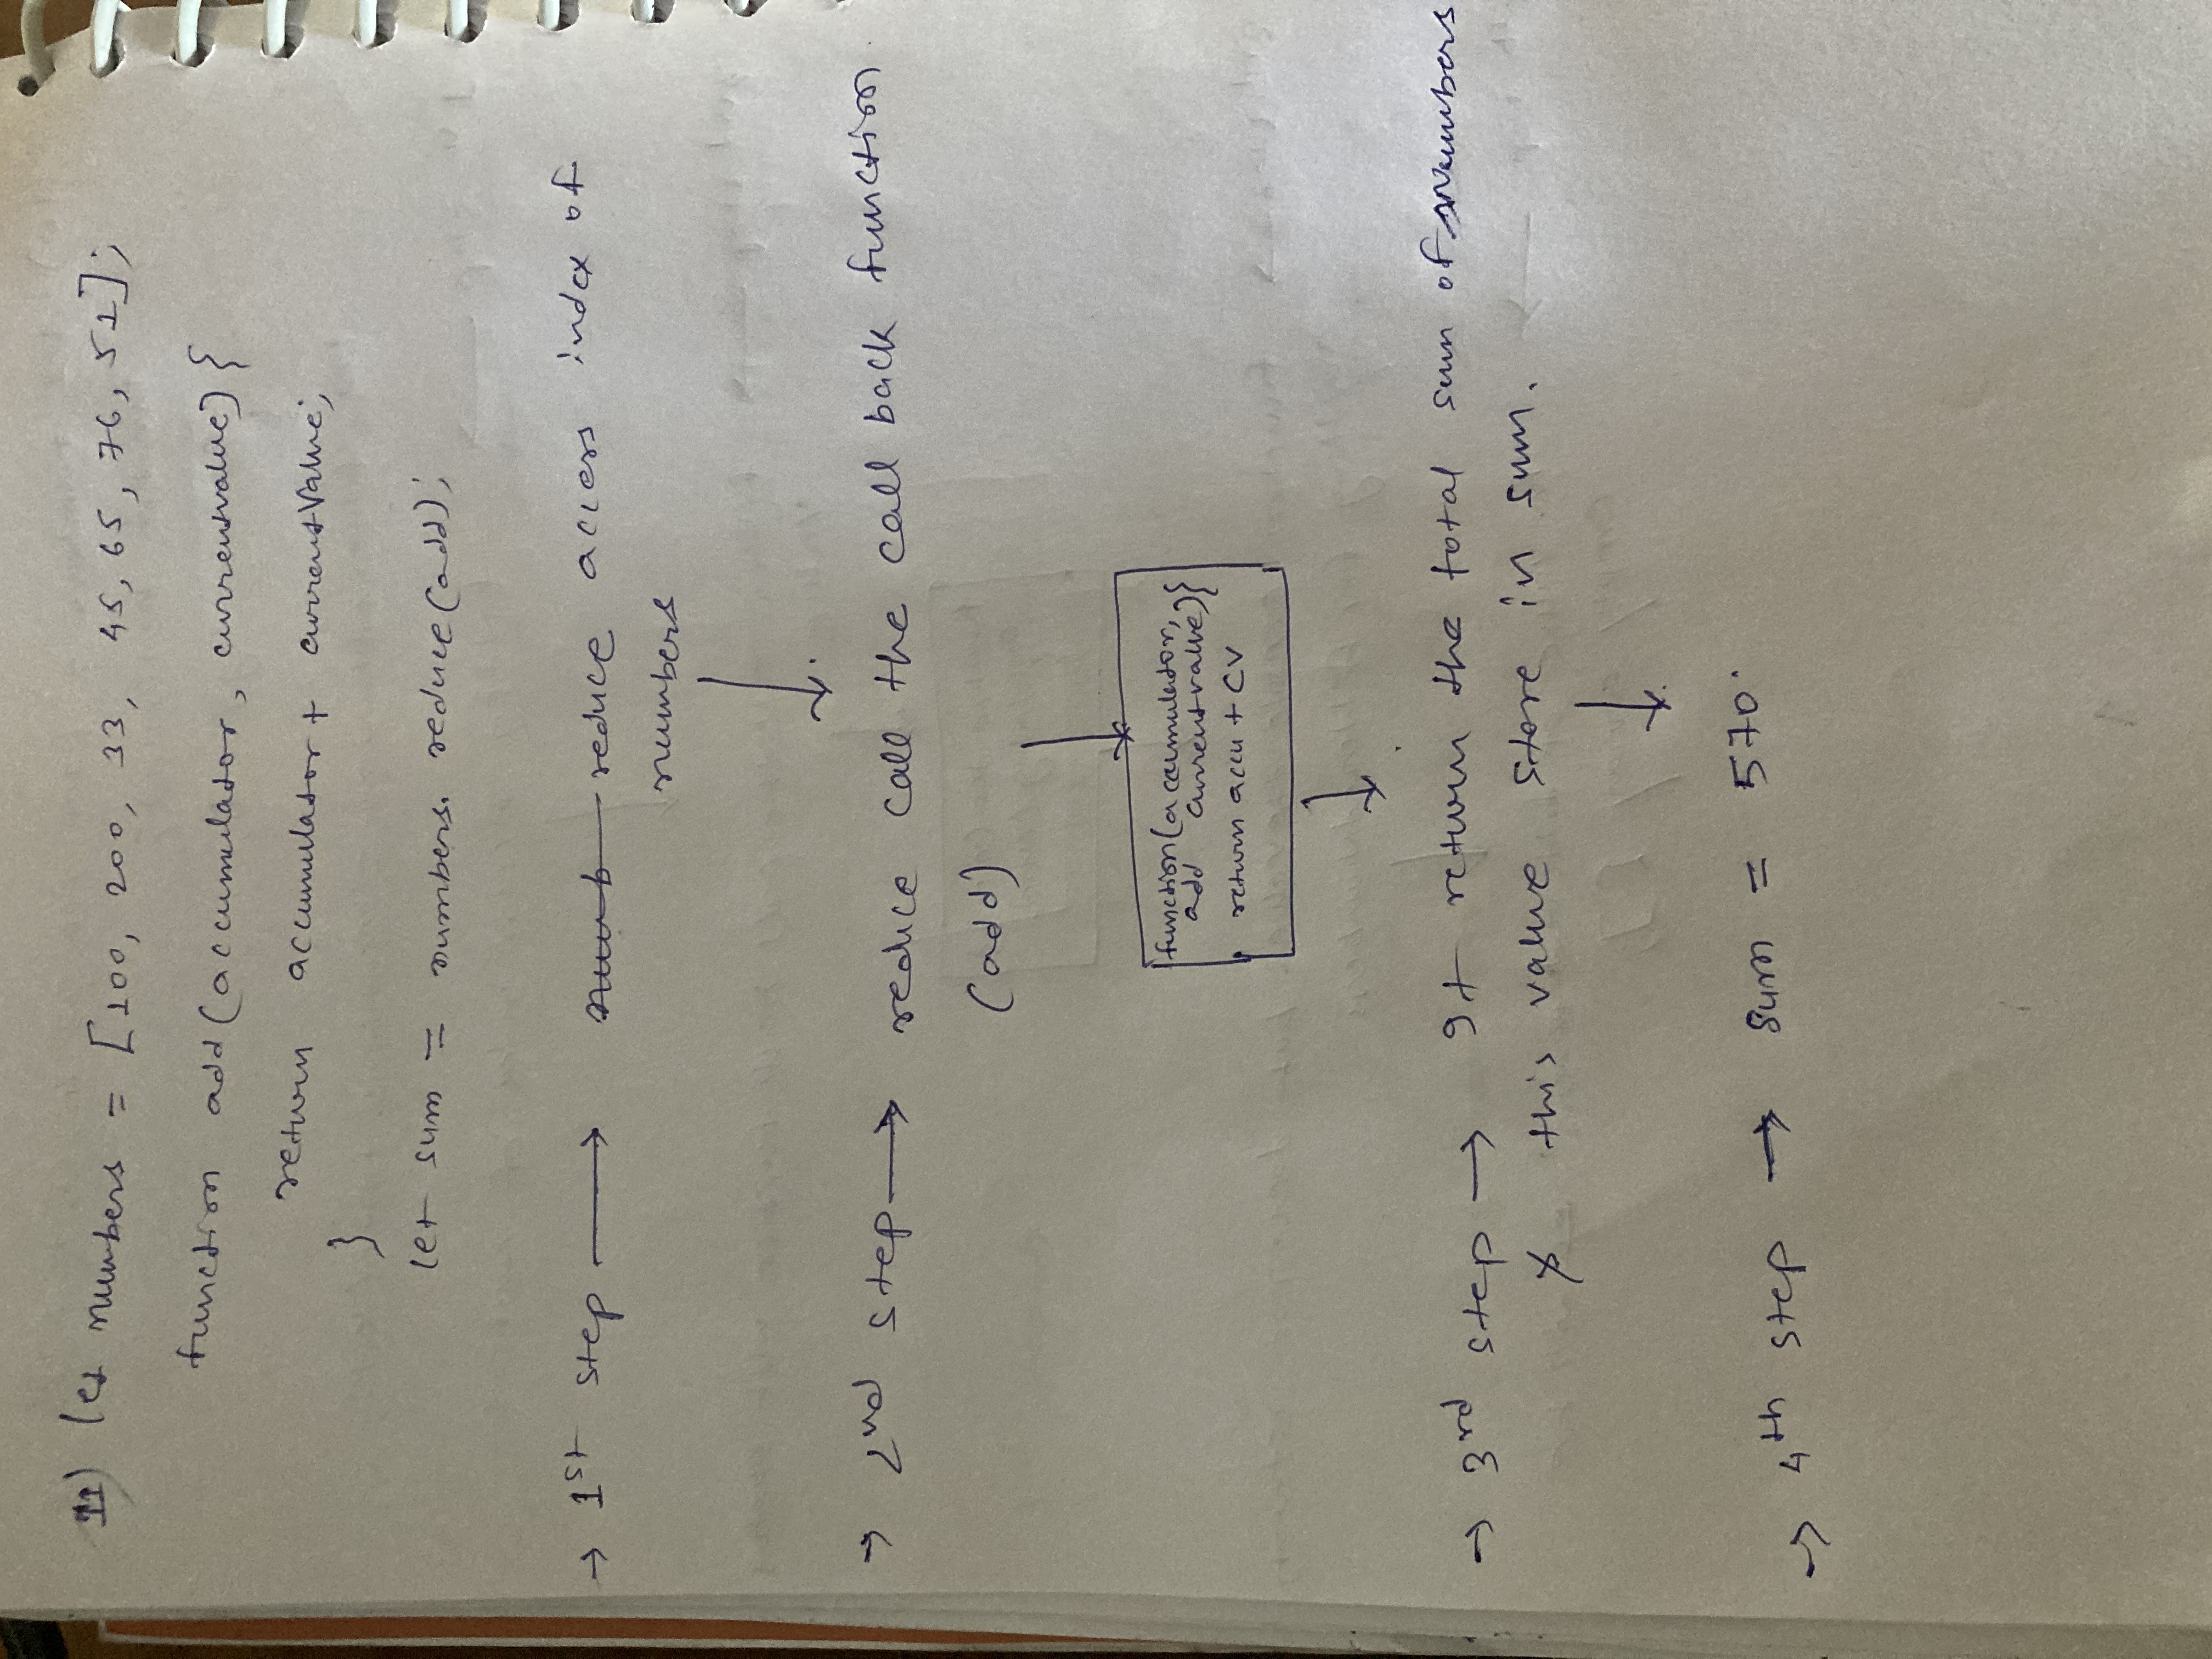 11) let numbers = [100, 200, 33, 45, 65, 76, 51];
function add(accumulator, currentvalue) {
return accumulator + currentValue;
}
let sum = numbers. reduce(add);
→ 1st step → numb reduce access index of
numbers
→ 2nd step → reduce call the call back function
(add)
function(accumulator,
add currentvalue){
return accu + CV
→ 3rd step → It return the total sum of numbers
this value store in sum.
→ 4th step → sum = 570.